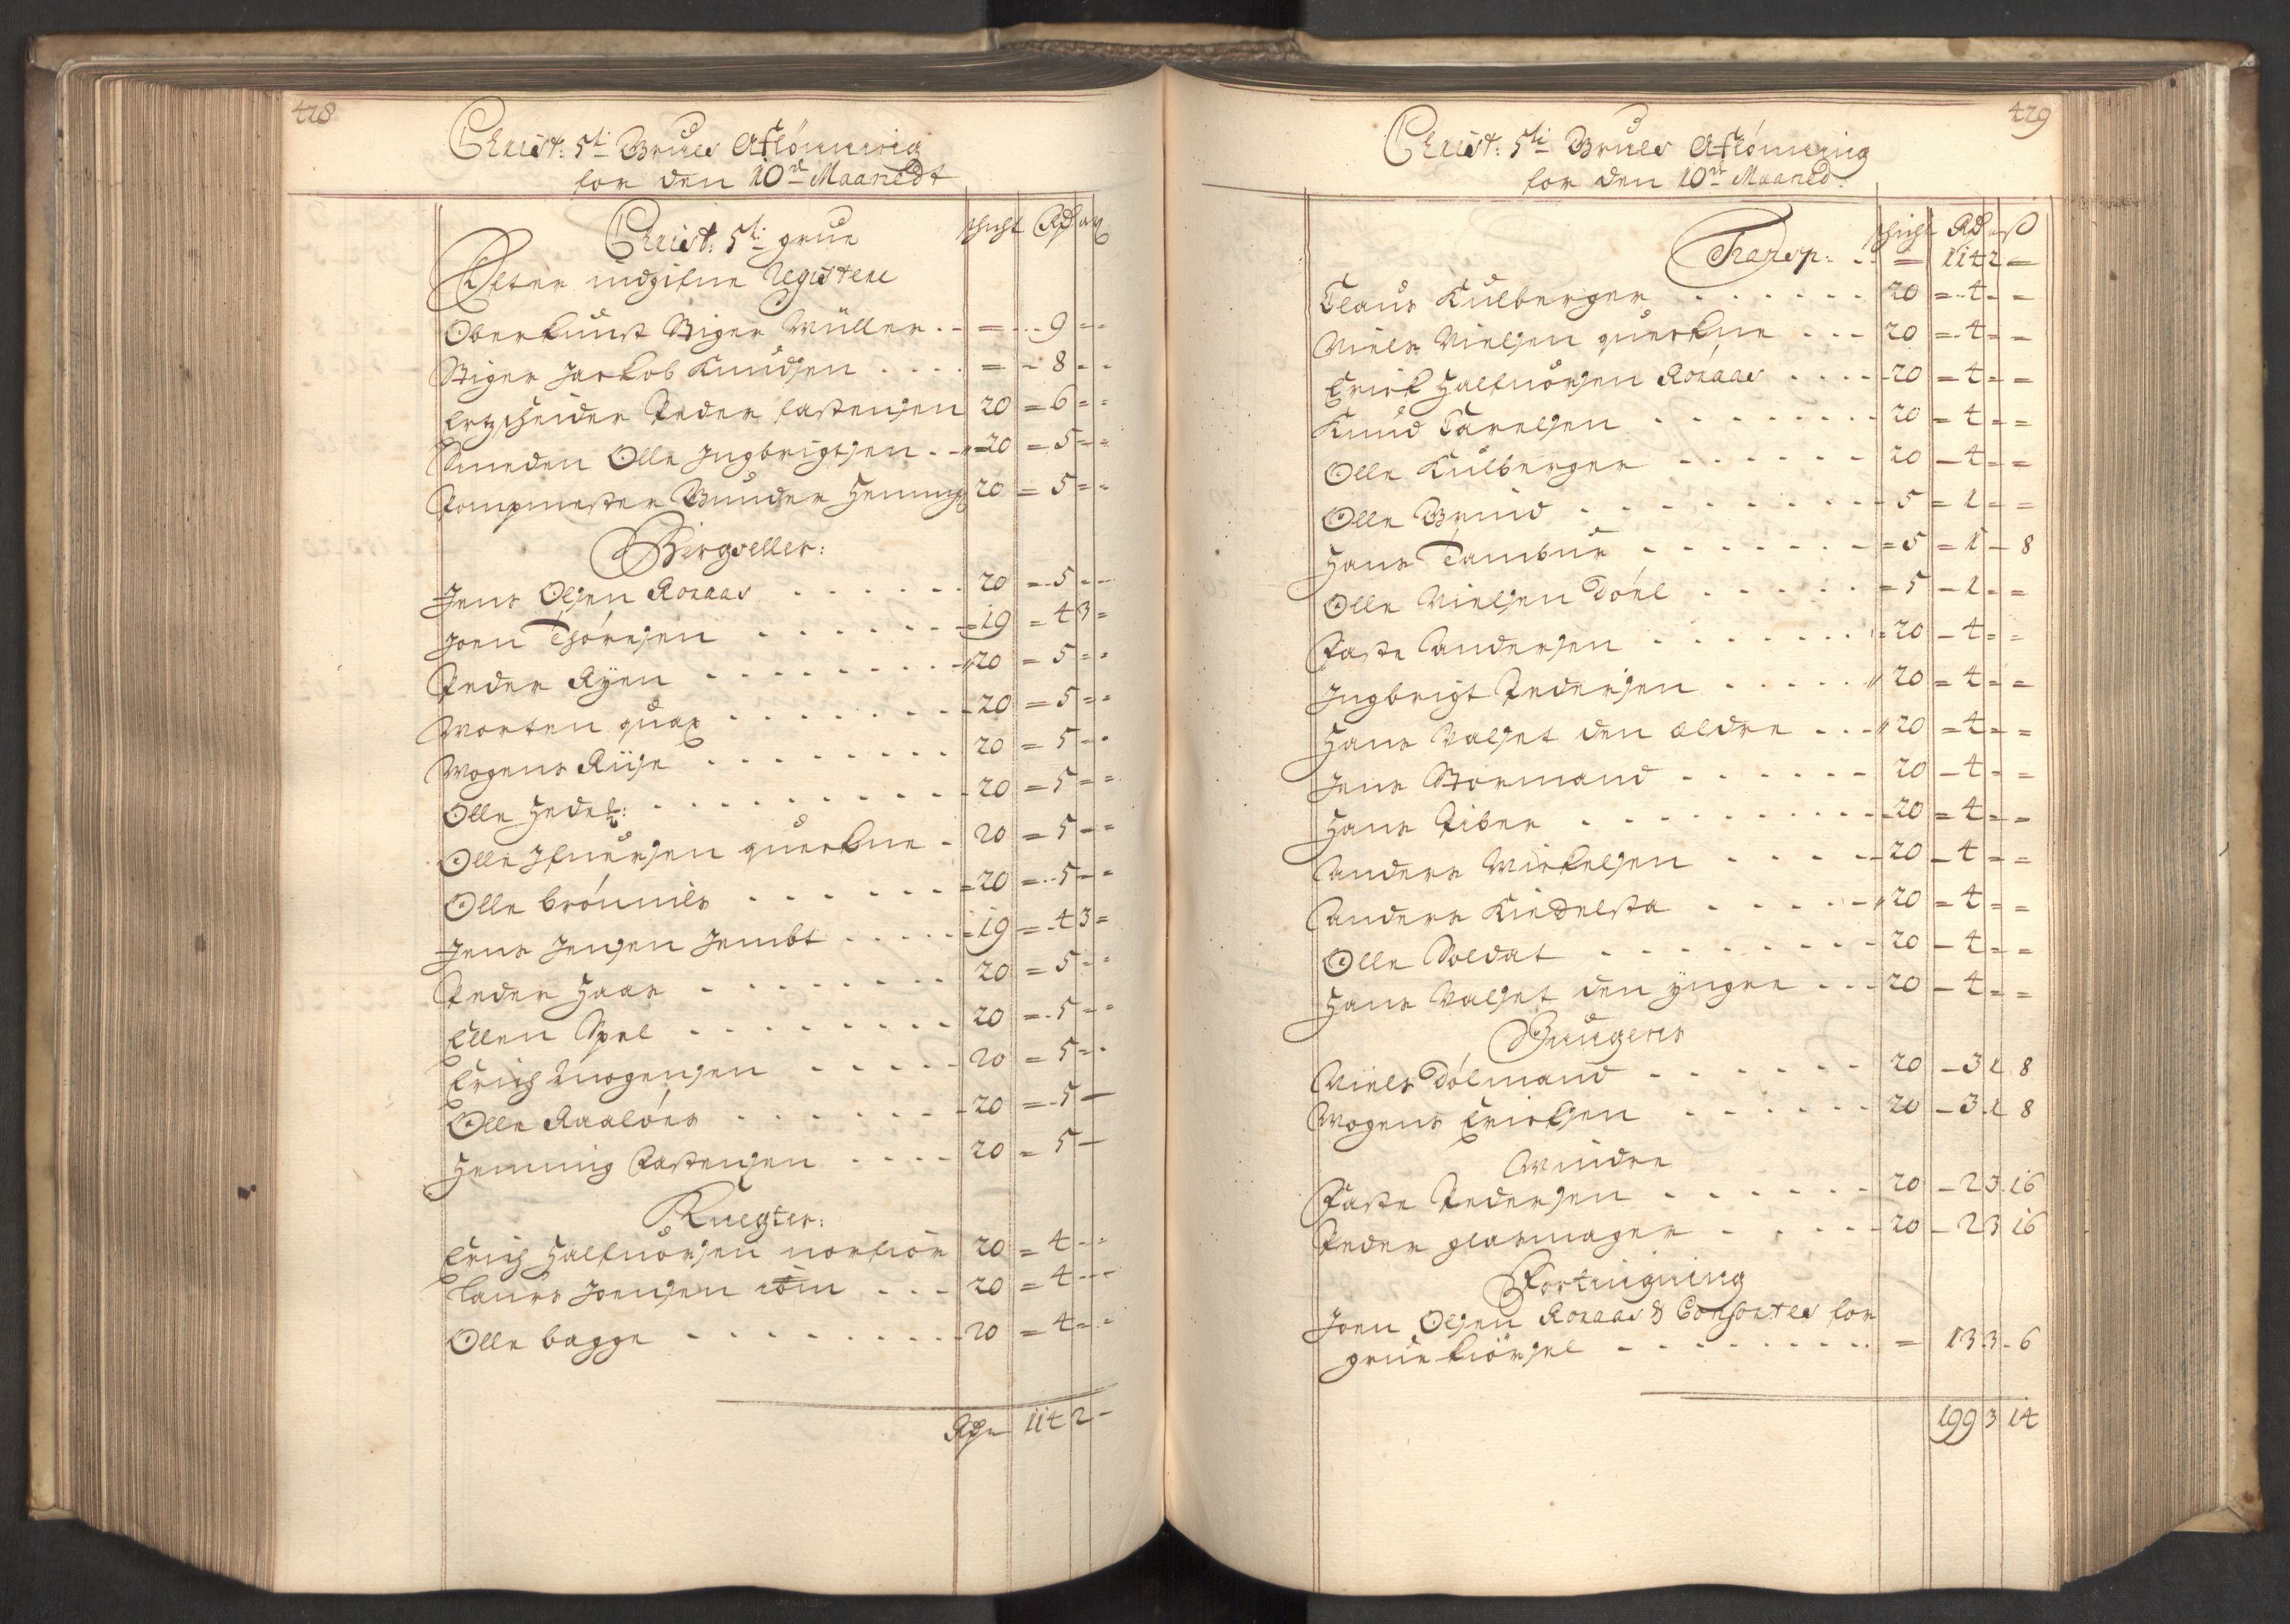 428
Christ: 5ti Grues Aflönning
for den 10de Maanedt
Christ: 5ti grue
schicht Rdr
Efter indgifne Registere
Oberkunst Stiger Müller . - = - . 9 = -
Stiger Jackob Knudsen . . . . = - 8 - -
Ertzscheider Peder Pastensen 20 = 6 = -
Smeden Olle Ingbrigtsen . - 20 = 5 - =
Pompmester Gunder Henning 20 = 5 = -
Bergveller:
Jens Olsen Roraas . . . . . . 20 = - 5 - -
Joen Thörrsen . . . . . . = 19 = 4 3 =
Peder Ryen . . . . . . 20 = 5 = -
Morten quax . . . . . . . - 20 = 5 = -
Mogens Riise . . . . . . . 20 = 5 - -
Olle Hedel: . . . . . . . . - 20 = 5 = =
Olle Ifuersen querkne . 20 = 5 - =
Olle brönnils . . . . . = 20 = . - 5 - -
Jens Jensen Jembt . . . . . - 19 = . 4 3 =
Peder Haar . . . . . . . 20 = 5 - -
Ellen Spel . . . . . . . . 20 = . 5 = -
Erich Mogensen . . . . . . 20 = 5 = -
Olle Raalöes . . . . . . - 20 = . 5 —
Henning Pastensen . . . . 20 = 5 —
Knegter:
Erich Halfuorsen norfiör 20 = 4 - -
Laurs Joensen . . . 20 = 4 - -
Olle bagge . . . . . . . . . 20 = 4 = -
Rdr 114 2 -
429
Christ: 5ti Grues Aflönning
for den 10de Maaned:
schicht Rdr
Transp: . . = 114 2 =
Claus Kulberger . . . . . . 20 = . 4 - -
Niels Nielsen querkne . . . 20 = . 4 - -
Erick Halfuorsen Roraas . . . . 20 = 4 = =
Knud Carelsen . . . . . . . . 20 = 4 = =
Olle Kulberger . . . . . . 20 - 4 = =
Olle Brind . . . . . . . . . - 5 = 1 - =
Hans Tambur . . . . . . . = 5 = 1 - 8
Olle Nielsen Döel . . . . . = 5 - 1 - =
Paste Andersen . . . . . . . = 20 - 4 = =
Ingbrigt Pedersen . . . . . 20 = 4 = =
Hans Valset den ældre . . . 20 = 4 = =
Jens Stormand . . . . . . 20 - 4 - =
Hans Piber . . . . . . . . . - 20 = 4 = =
Anders Mickelsen . . . . - 20 - 4 = =
Anders Kiedelsta . . . . . 20 = 4 = =
Olle Soldat . . . . . . . . - 20 - 4 - =
Hans Valset den yngre . . . 20 - 4 = =
Niels Dölmand . . . . . . 20 - 3 1 8
Mogens Ericksen . . . . . . 20 - 3 1 8
Mindre
Paste Pedersen . . . . . . 20 - 2 3 . 16
Peder glasmager . . . . - 20 - 2 3 16
Fortingning
Joen Olsen Roraas & Consortes for
grue kiörsel . . . . . . . . . = 13 3 . 6
199 3 14